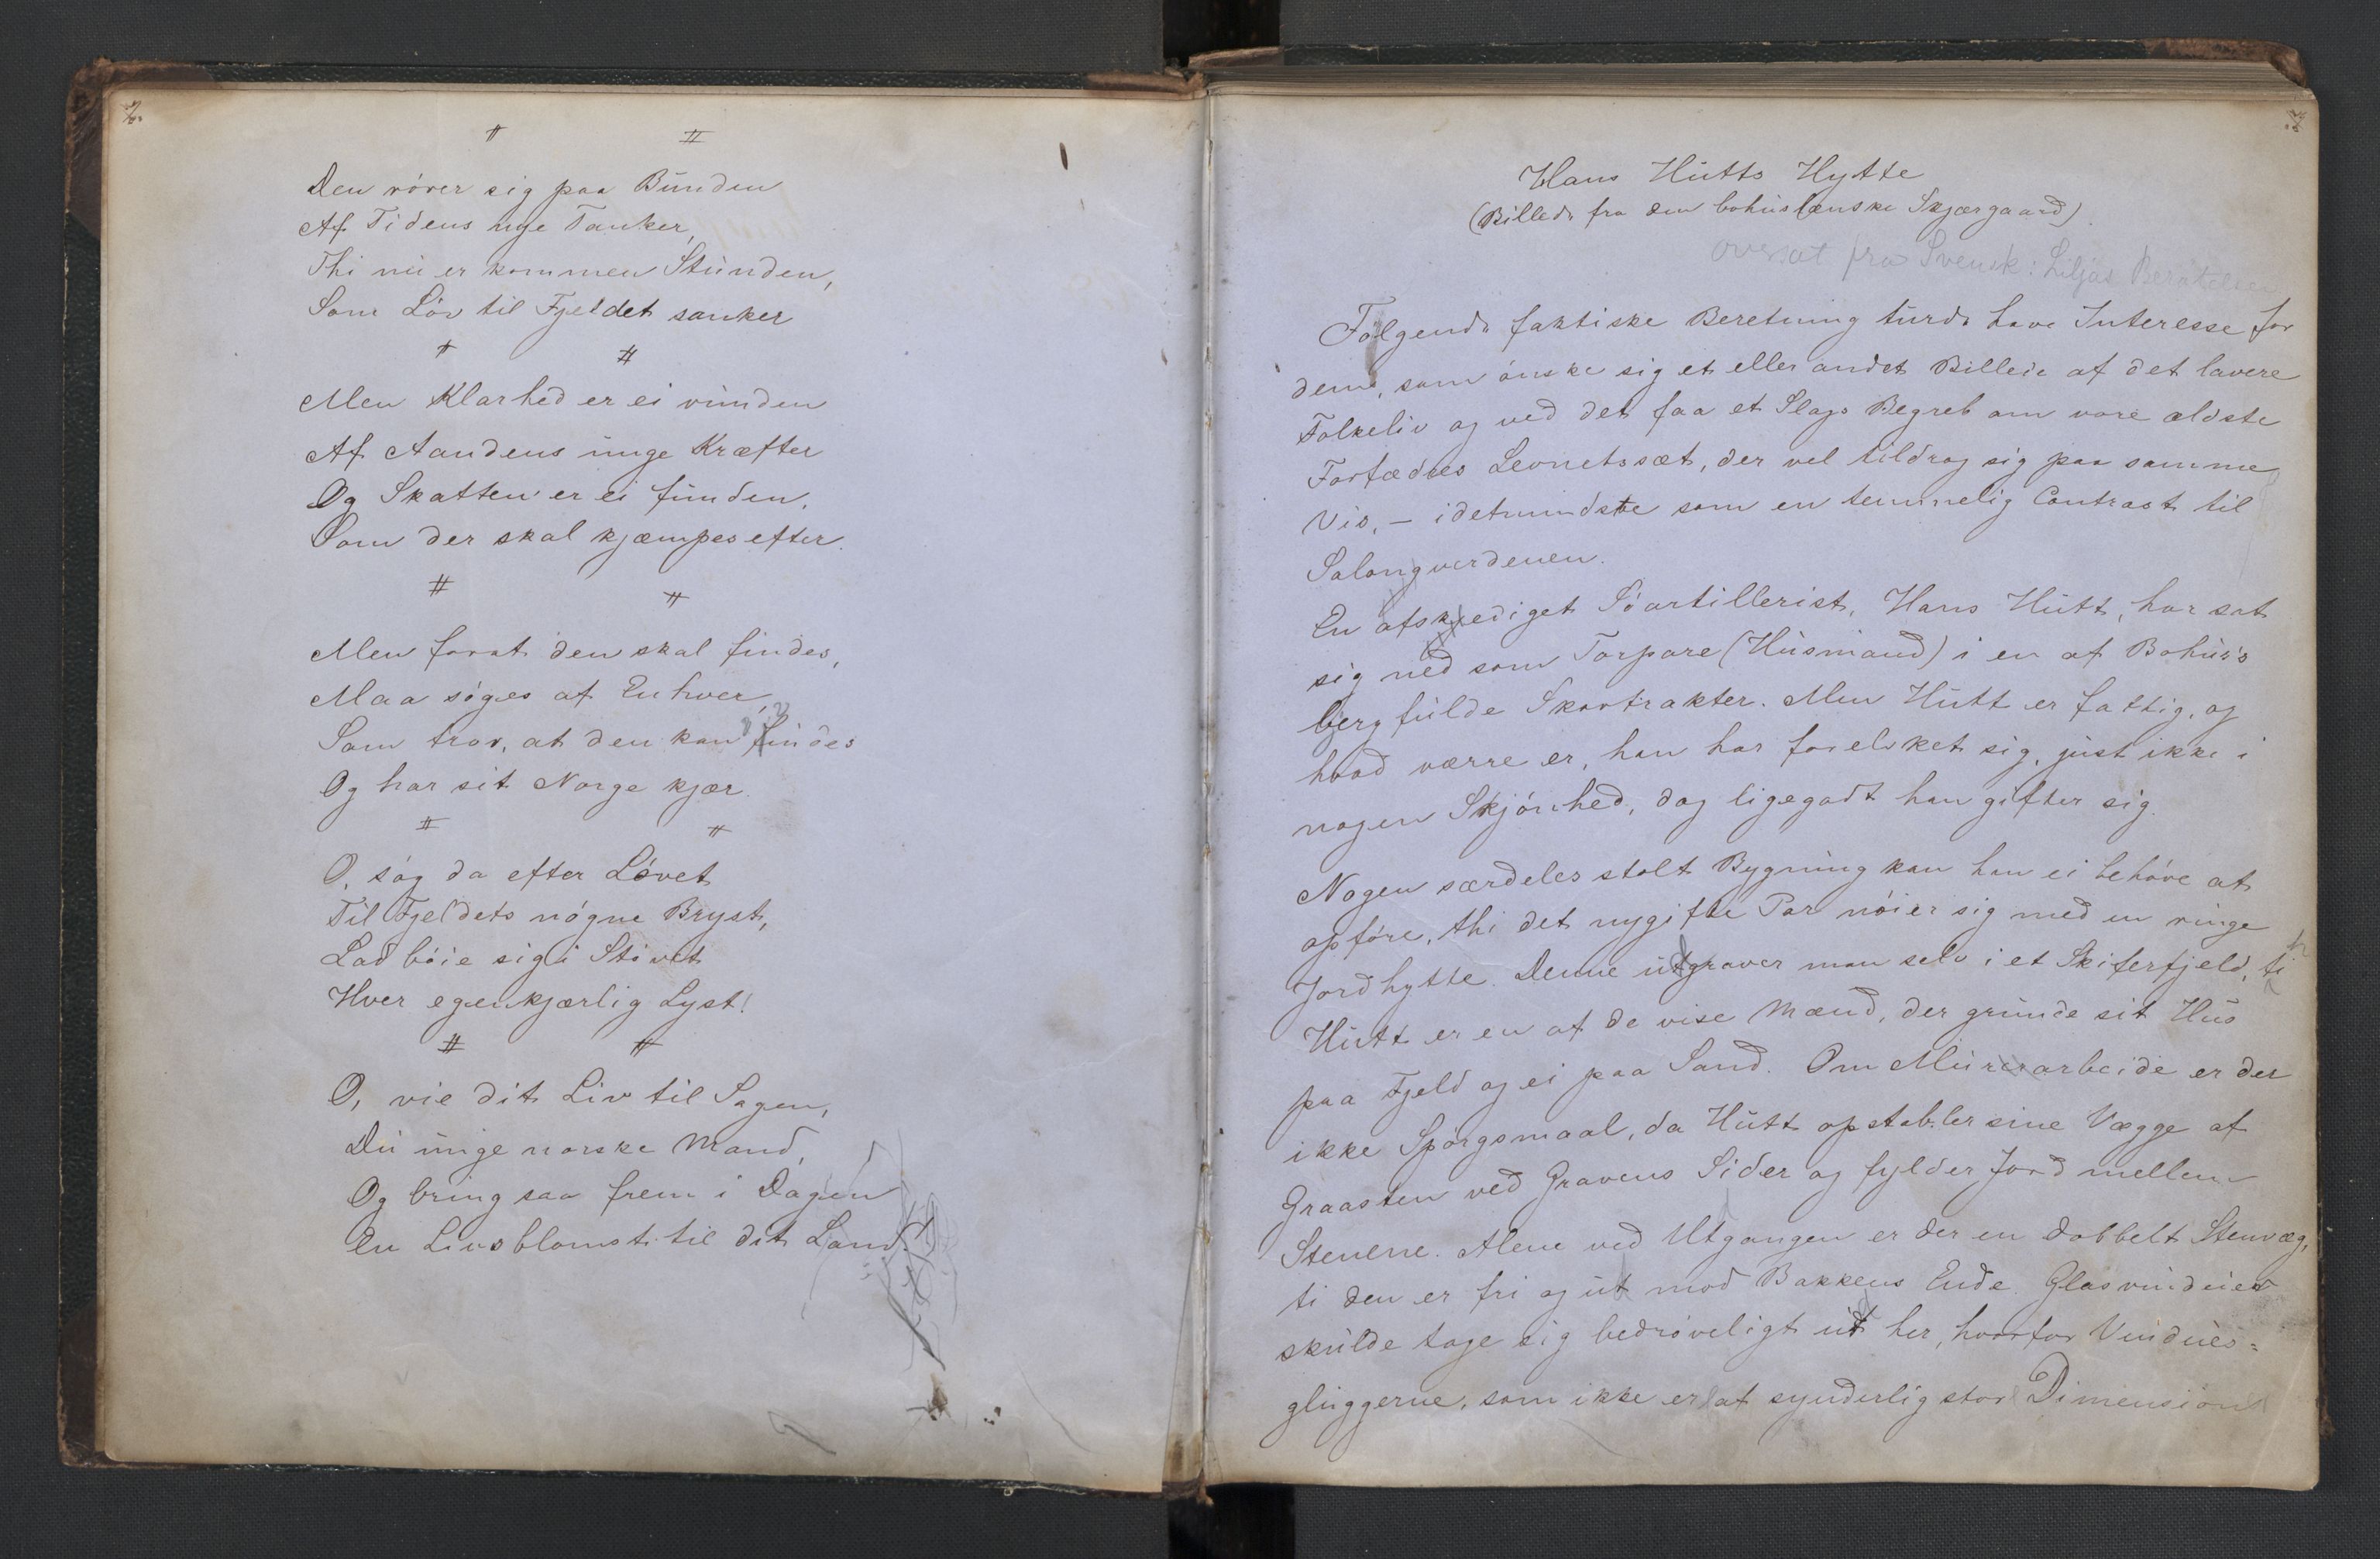 2.
# #
Den rörer sig paa Bunden
Af Tidens nye Tanker,
Thi nu er kommen Stunden,
Som Löv til Fjeldet sanker
# #
Men Klarhed er ei vunden
Af Aandens unge Kræfter
Og Skatten er ei funden,
Som der skal kjæmpes efter.
# #
Men forat den skal findes,
Maa söges af Enhver,
Som tror, at den kan findes
Og har sit Norge kjær.
# #
O, søg da efter Lövet
Til Fjeldets nögne Bryst,
Lad böie sig i Stövet
Hver egenkjærlig Lyst!
# #
O, vie dit Liv til Sagen,
Du unge norske Mand,
Og bring saa frem i Dagen
En Livsblomst til dit Land.
3.
Hans Hutts Hytte
(Billede fra den bohuslenske Skjærgaard).
oversat fra Svensk: Liljas Berätelser
Følgende faktiske Beretning turde have Interesse for
dem, som önske sig et eller andet Billede af det lavere
Folkeliv og ved det faa et Slags Begreb om vore ældste
Forfædres Levnetssæt, der vel tildrog sig paa samme
Vis, – idetmindste som en temmelig Contrast til
Salongverdenen.
En afskediget Söartillerist, Hans Hutt, har sat
sig ned som Torpare (Husmand) i en af Bohus's
bergfulde Skovtrakter. Men Hutt er fattig, og
hvad værre er, han har forelsket sig, just ikke i
nogen Skjönhed, dog ligegodt han gifter sig.
Nogen særdeles stolt Bygning kan han ei behöve at
opföre, thi det nygifte Par nöier sig med en ringe
Jordhytte. Denne udgraver man selv i et Skiferfjeld, thi
Hutt er en af de vise Mænd, der grunde sit Hus
paa Fjeld og ei paa Sand. Om Murerarbeide er der
ikke Spörgsmaal, da Hutt opstabler sine Vægge af
Graasten ved Gravens Sider og fylder Jord mellem
Stenene. Alene ved Utgangen er der en dobbelt Stenvæg,
ti den er fri og ut mod Bakkens Ende. Glasvinduer
skulde tage sig bedröveligt ud her, hvorfor Vindues=
gluggerne, som ikke er at synderlig stor Dimension